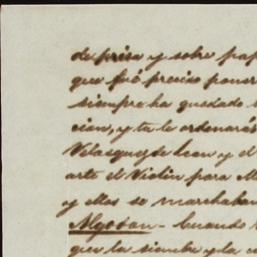 de prisa y sobre pap
que fué preciso poner
siempre ha quedado
cian, y tu le ordenarás
Velasquez de Leon y el
arte el Violin para M
y ellos se marchaban
Algodon - Cuando
que la siembre y la c